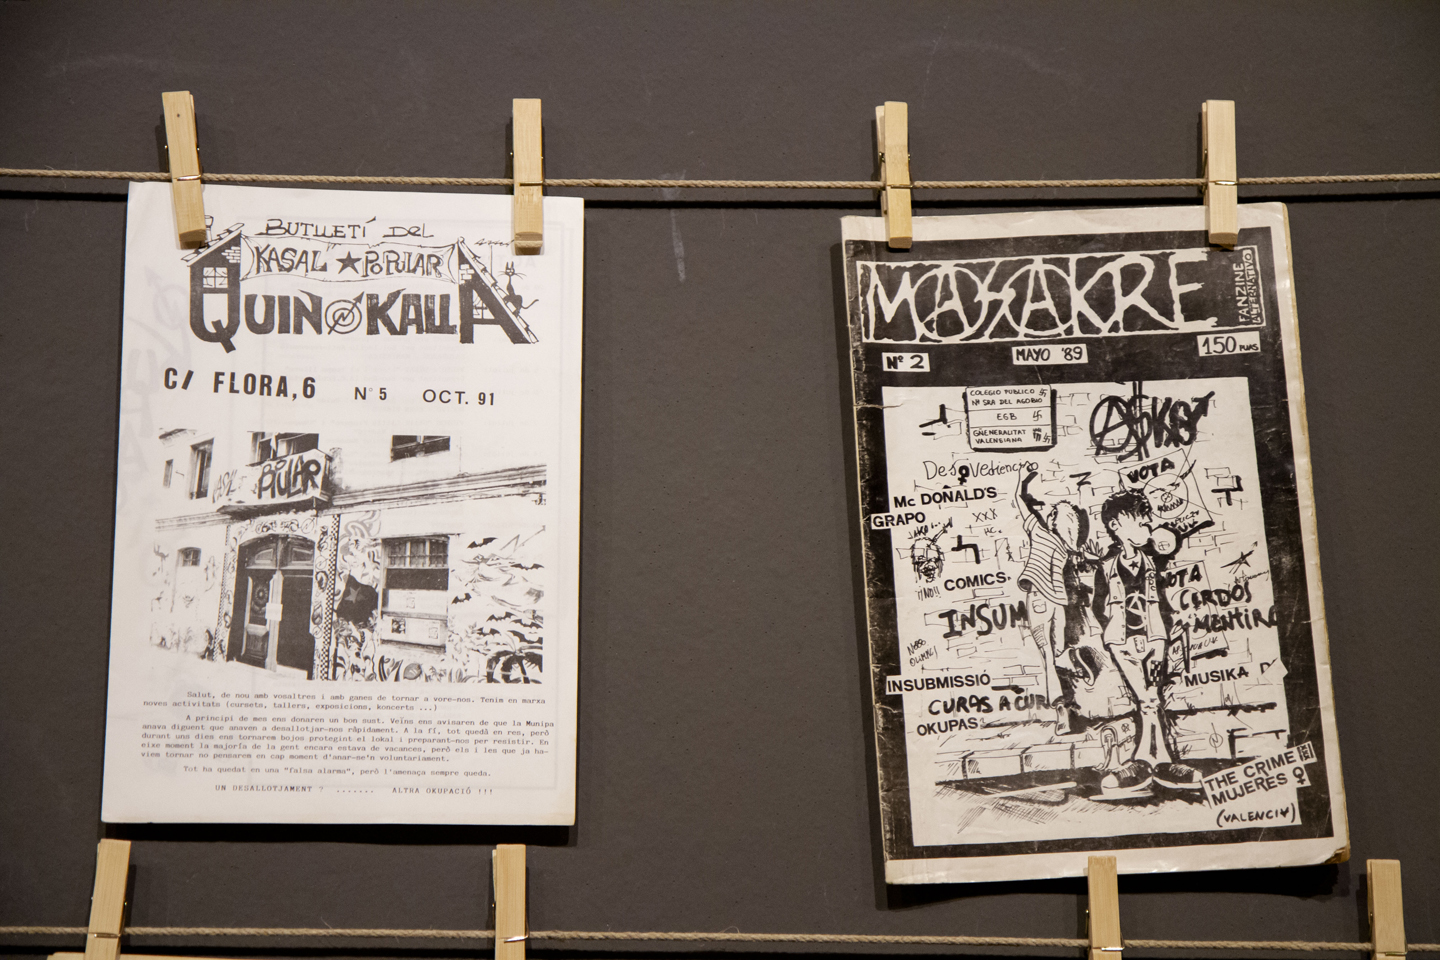 BUTLLETÍ DEL
KASAL ★ POPULAR
QUINOKALLA
C/ FLORA,6 N°5 OCT. 91
POPULAR
Salut, de nou amb vosaltres i amb ganes de tornar a vore-nos. Tenim en marxa
noves activitats (cursets, tallers, exposicions, koncerts ...)
A principi de mes ens donaren un bon sust. Veïns ens avisaren de que la Munipa
anava diguent que anaven a desallotjar-nos ràpidament. A la fí, tot quedà en res, però
durant uns dies ens tornarem bojos protegint el lokal i preparant-nos per resistir. En
eixe moment la majoría de la gent encara estava de vacances, però els i les que ja ha-
viem tornar no pensarem en cap moment d'anar-ne'n voluntariament.
Tot ha quedat en una "falsa alarma", però l'amenaça sempre queda.
UN DESALLOTJAMENT ? ....... ALTRA OKUPACIÓ !!!
MASAKRE
FANZINE
ALTERNATIVO
Nº 2
MAYO '89
150 PTAS
COLEGIO PUBLICO
Nª SRA DEL AGOBIO
EGB
GENERALITAT
VALENSIANA
ASKO
VOTA
Mc DONALD'S
GRAPO
XXX
¡¡NO!!
COMICS.
INSUM
VOTA
CERDOS
MENTIRO
INSUBMISSIÓ
CURAS A CUR
OKUPAS
MUSIKA
THE CRIME
MUJERES ♀
(VALENCIA)